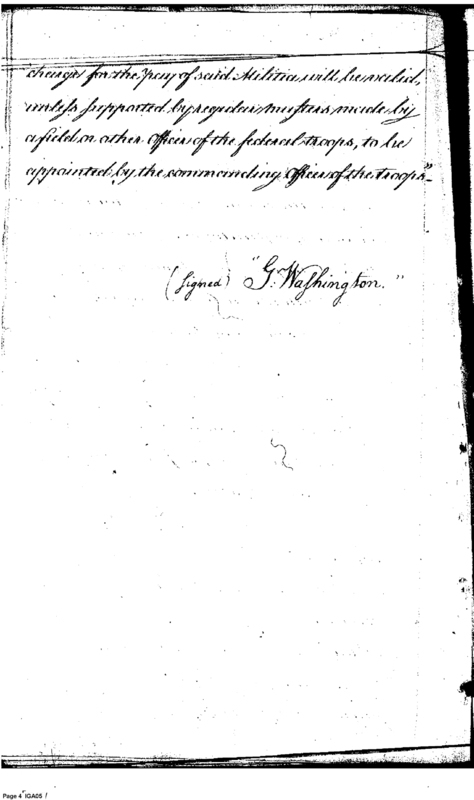 charges for the pay of said Militia will be valid,
unless supported by regular musters made by
a field or other Officer of the federal troops, to be
appointed by the commanding Officer of the troops"
(signed) "G. Washington."
Page 4 IGA05 /